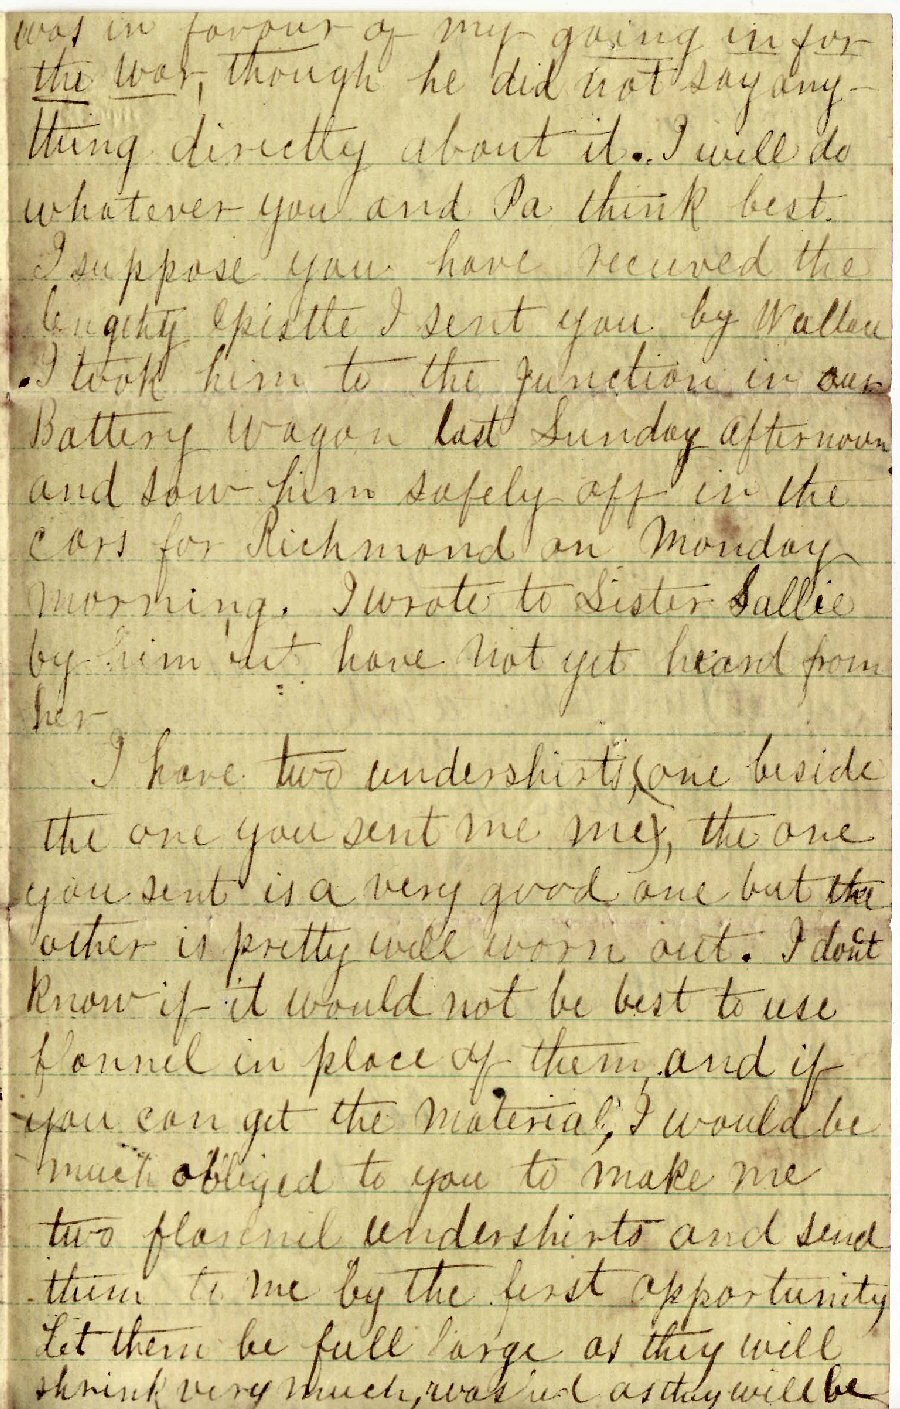 was in favour of my going in for
the war, though he did not say any-
thing directly about it. I will do
whatever you and Pa think best.
I suppose you have recieved the
lengthy epistle I sent you by
I took him to the Junction in our
Battery Wagon last Sunday afternoon
and saw him safely off in the
cars for Richmond on Monday
morning. I wrote to Sister Sallie
by him but have not yet heard from
her
I have two undershirts, (one beside
the one you sent me me), the one
you sent is a very good one but the
other is pretty well worn out. I dont
know if it would not be best to use
flannel in place of them, and if
you can get the material, I would be
much obliged to you to make me
two flannel undershirts and send
them to me by the first opportunity
Let them be full large as they will
shrink very much, washed as they will be